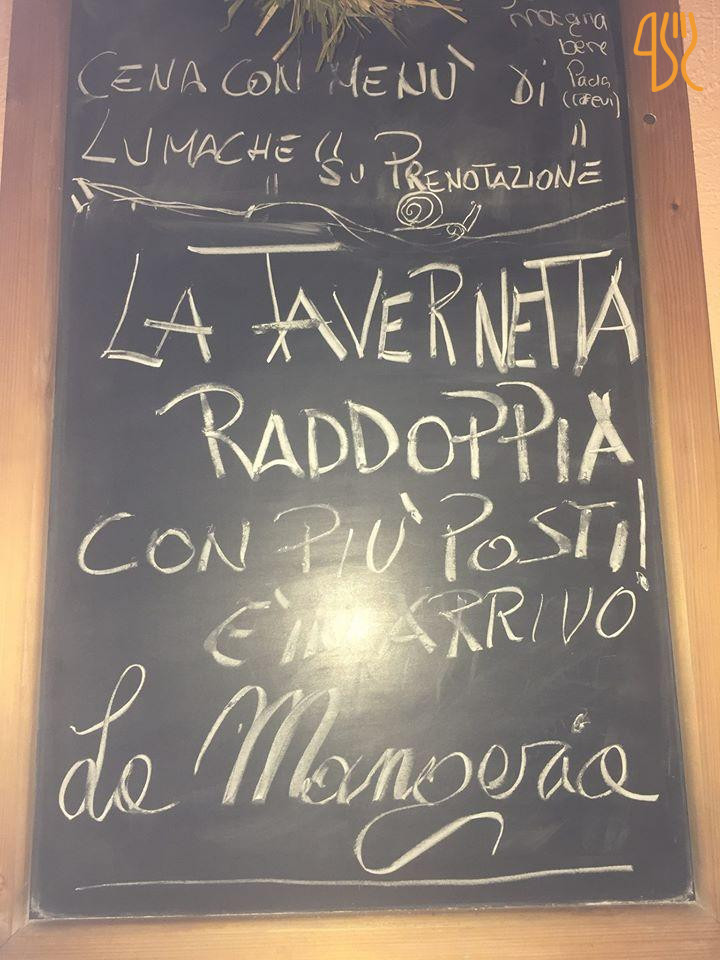 magna
bene
CENA CON MENÙ DI
LUMACHE!! SU PRENOTAZIONE
LA TAVERNETTA
RADDOPPIA
CON PIÙ POSTI!
E' IN ARRIVO
La Mangeria